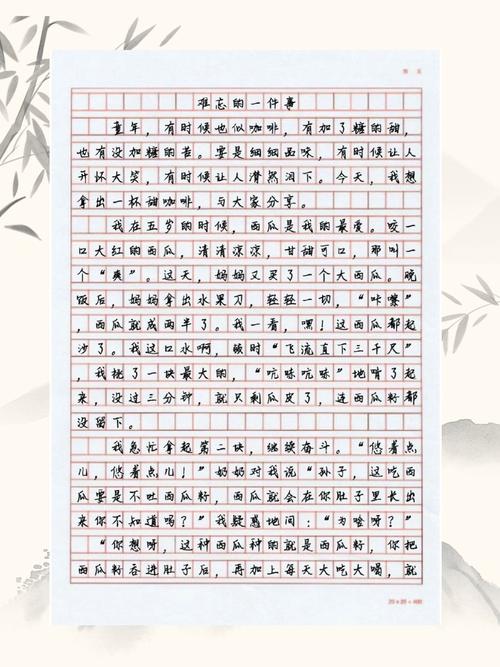 难忘的一件事
童年，有时候也似咖啡，有加了糖的甜，
也有没加糖的苦。要是细细品味，有时候让人
开怀大笑，有时候让人潸然泪下。今天，我想
拿出一杯甜咖啡，与大家分享。
我在五岁的时候，西瓜是我的最爱。咬一
口大红的西瓜，清清凉凉，甘甜可口，那叫一
个“爽”。这天，妈妈又买了一个大西瓜。晚
饭后，妈妈拿出水果刀，轻轻一切，“咔嚓”
，西瓜就成两半了。我一看，嘿！这西瓜都起
沙了。我这口水啊，顿时“飞流直下三千尺”
，我挑了一块最大的，“吭哧吭哧”地啃了起
来，没过三分钟，就只剩瓜皮了，连西瓜籽都
没留下。
我急忙拿起第二块，继续奋斗。“悠着点
儿，悠着点儿！”奶奶对我说“孙子，这吃西
瓜要是不吐西瓜籽，西瓜就会在你肚子里长出
来你不知道吗？”我疑惑地问：“为啥呀？”
“你想呀，这种西瓜种的就是西瓜籽，你把
西瓜籽吞进肚子后，再加上每天大吃大喝，就
20×20=400